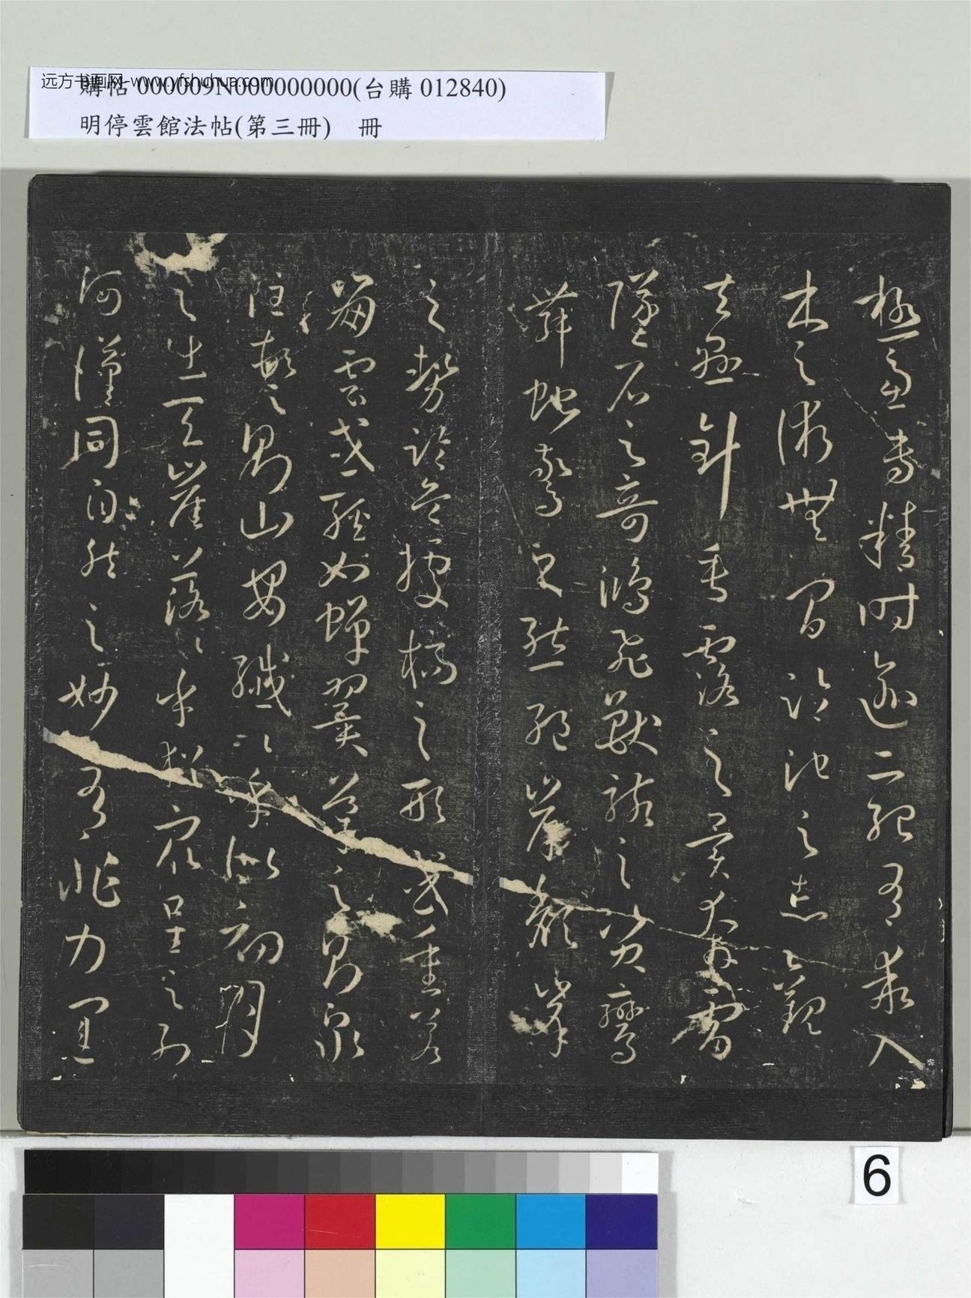 远方书画网-www.yfshuhua.com
購帖 000009N000000000(台購 012840)
明停雲館法帖(第三冊) 冊
極慮專精時逾二紀有乖入
木之術無間臨池之志觀
夫懸針垂露之異奔雷
墜石之奇鴻飛獸駭之資鸞
舞蛇驚之態絕岸頹峯
之勢臨危據槁之形或重若
崩雲或輕如蟬翼導之則泉
注頓之則山安纖〻乎似初月
之出天崖落〻乎猶衆星之列
河漢同自然之妙有非力運
6